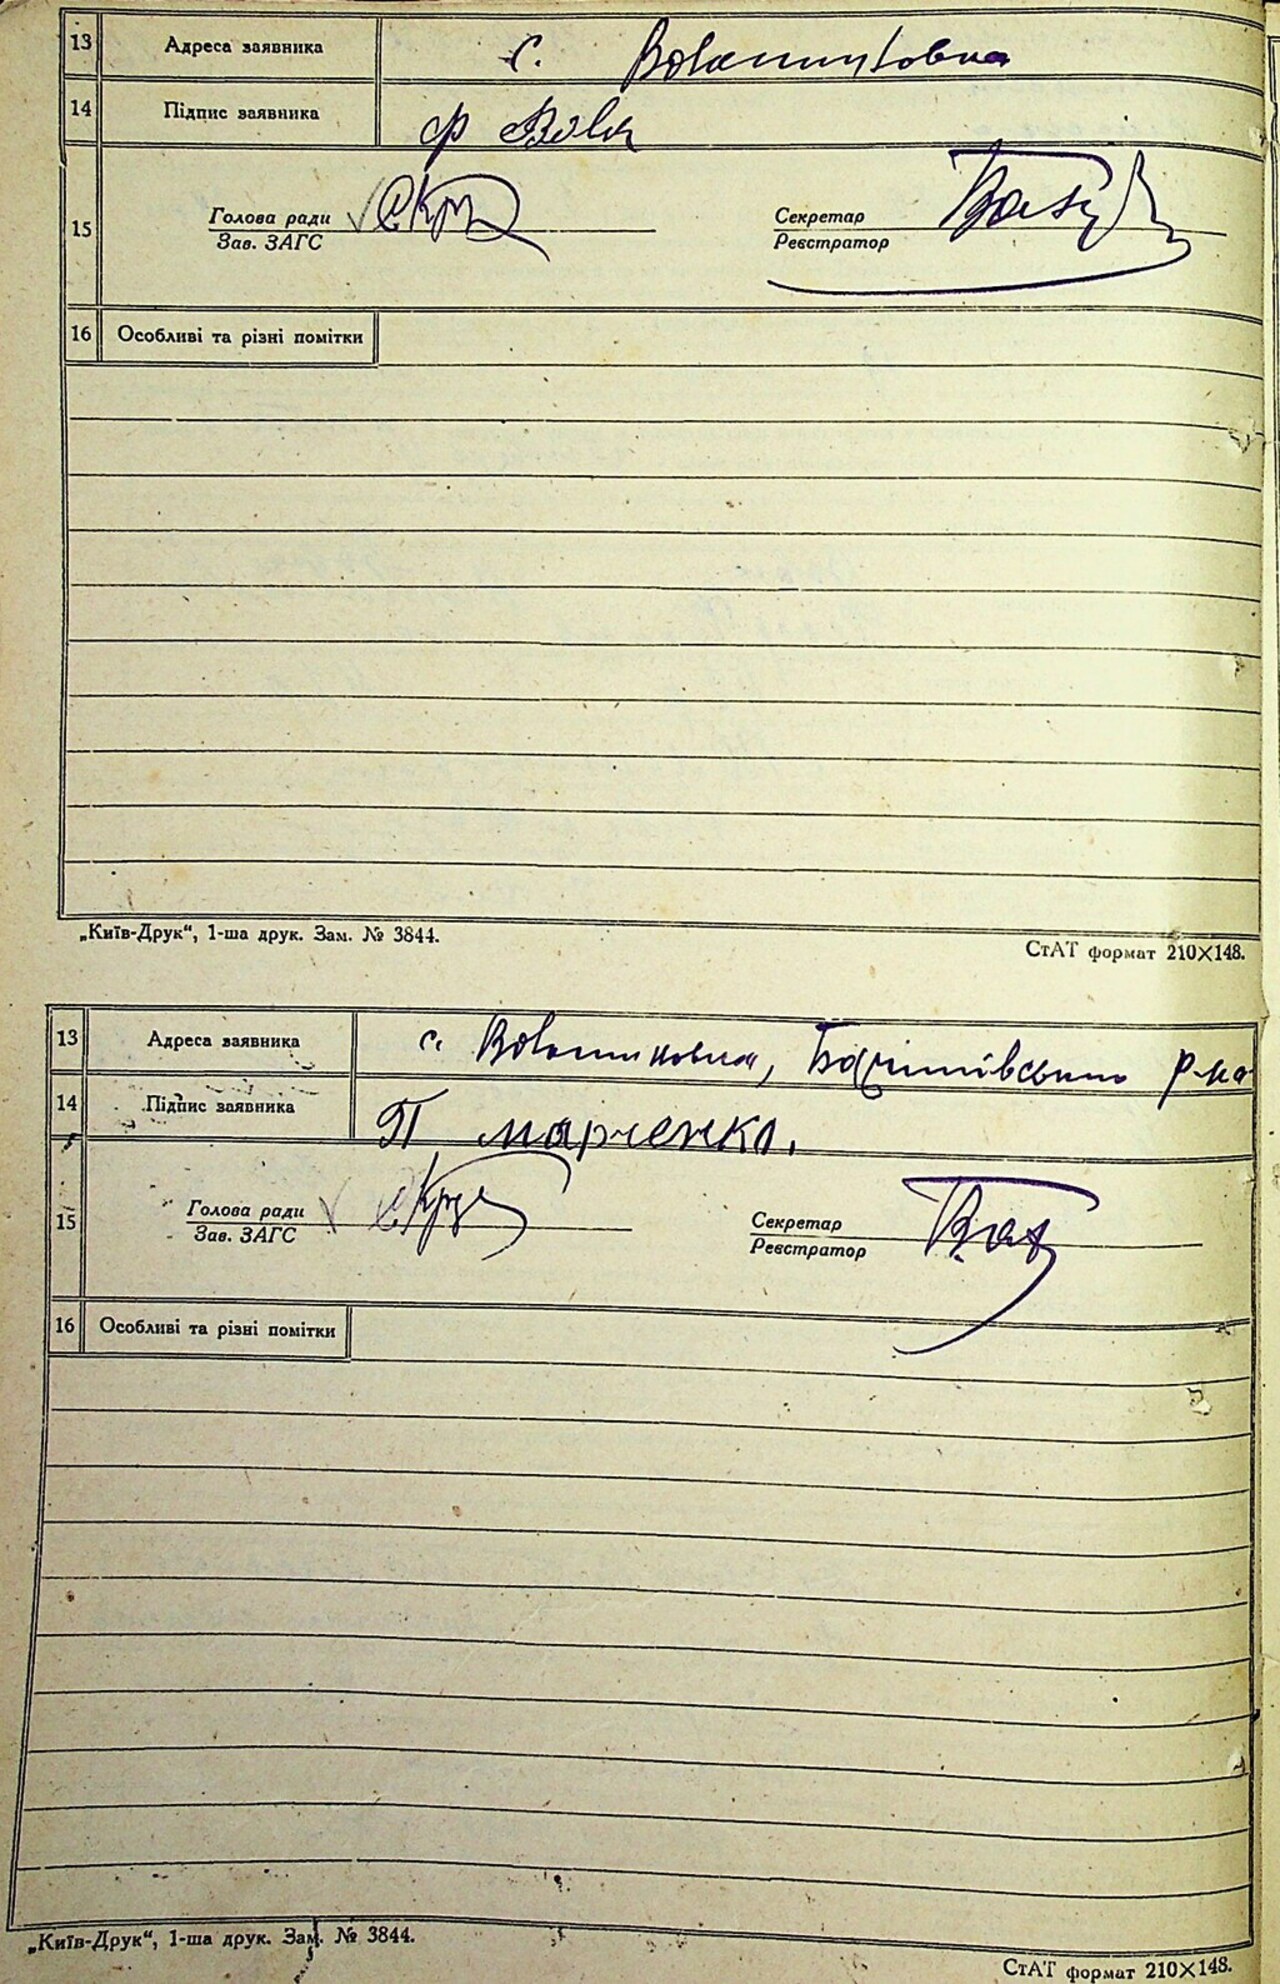 13 Адреса заявника с. Волошиновка
14 Підпис заявника Ф Вовк
15 Голова ради
Зав. ЗАГС
Секретар
Реєстратор
16 Особливі та різні помітки
„Київ-Друк“, 1-ша друк. Зам. № 3844.
СтАТ формат 210×148.
13 Адреса заявника с. Волошиновка, Баришівського р-на
14 Підпис заявника П Марченко.
15 Голова ради
Зав. ЗАГС
Секретар
Реєстратор
16 Особливі та різні помітки
„Київ-Друк“, 1-ша друк. Зам. № 3844.
СтАТ формат 210×148.